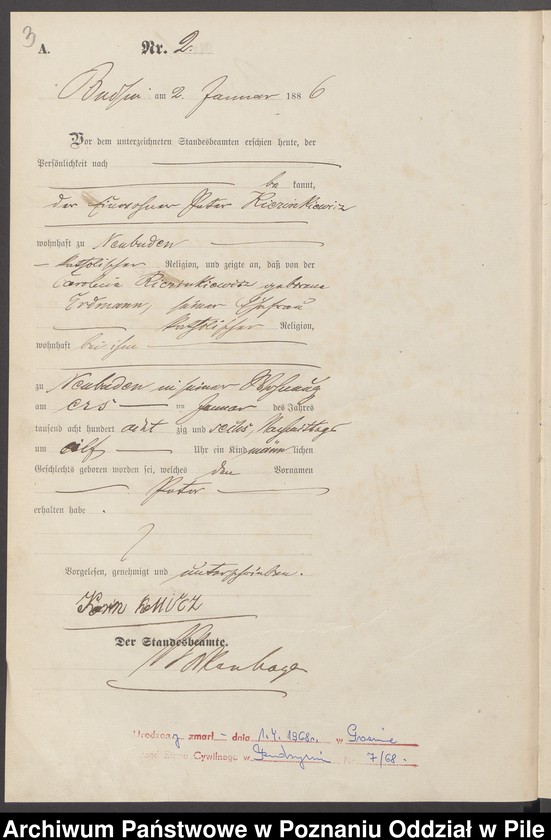 3
A. Nr. 2.
Budsin am 2. Januar 1886
Vor dem unterzeichneten Standesbeamten erschien heute, der
Persönlichkeit nach
be kannt,
der Einwohner Peter
wohnhaft zu Neubuden
katholischer Religion, und zeigte an, daß von der
Carolina geborene
Erdmann, seiner Ehefrau
katholischer Religion,
wohnhaft bei ihm
zu Neubuden in seiner Wohnung
am ers ten Januar des Jahres
tausend acht hundert acht zig und sechs, Nachmittags
um eilf Uhr ein Kind männ lichen
Geschlechts geboren worden sei, welches den Vornamen
Peter
erhalten habe.
Vorgelesen, genehmigt und unterschrieben.
Der Standesbeamte.
Urodzony zmarł – dnia 1.4.1968r. w
Urząd Stanu Cywilnego w Nr. 7/68.
Archiwum Państwowe w Poznaniu Oddział w Pile